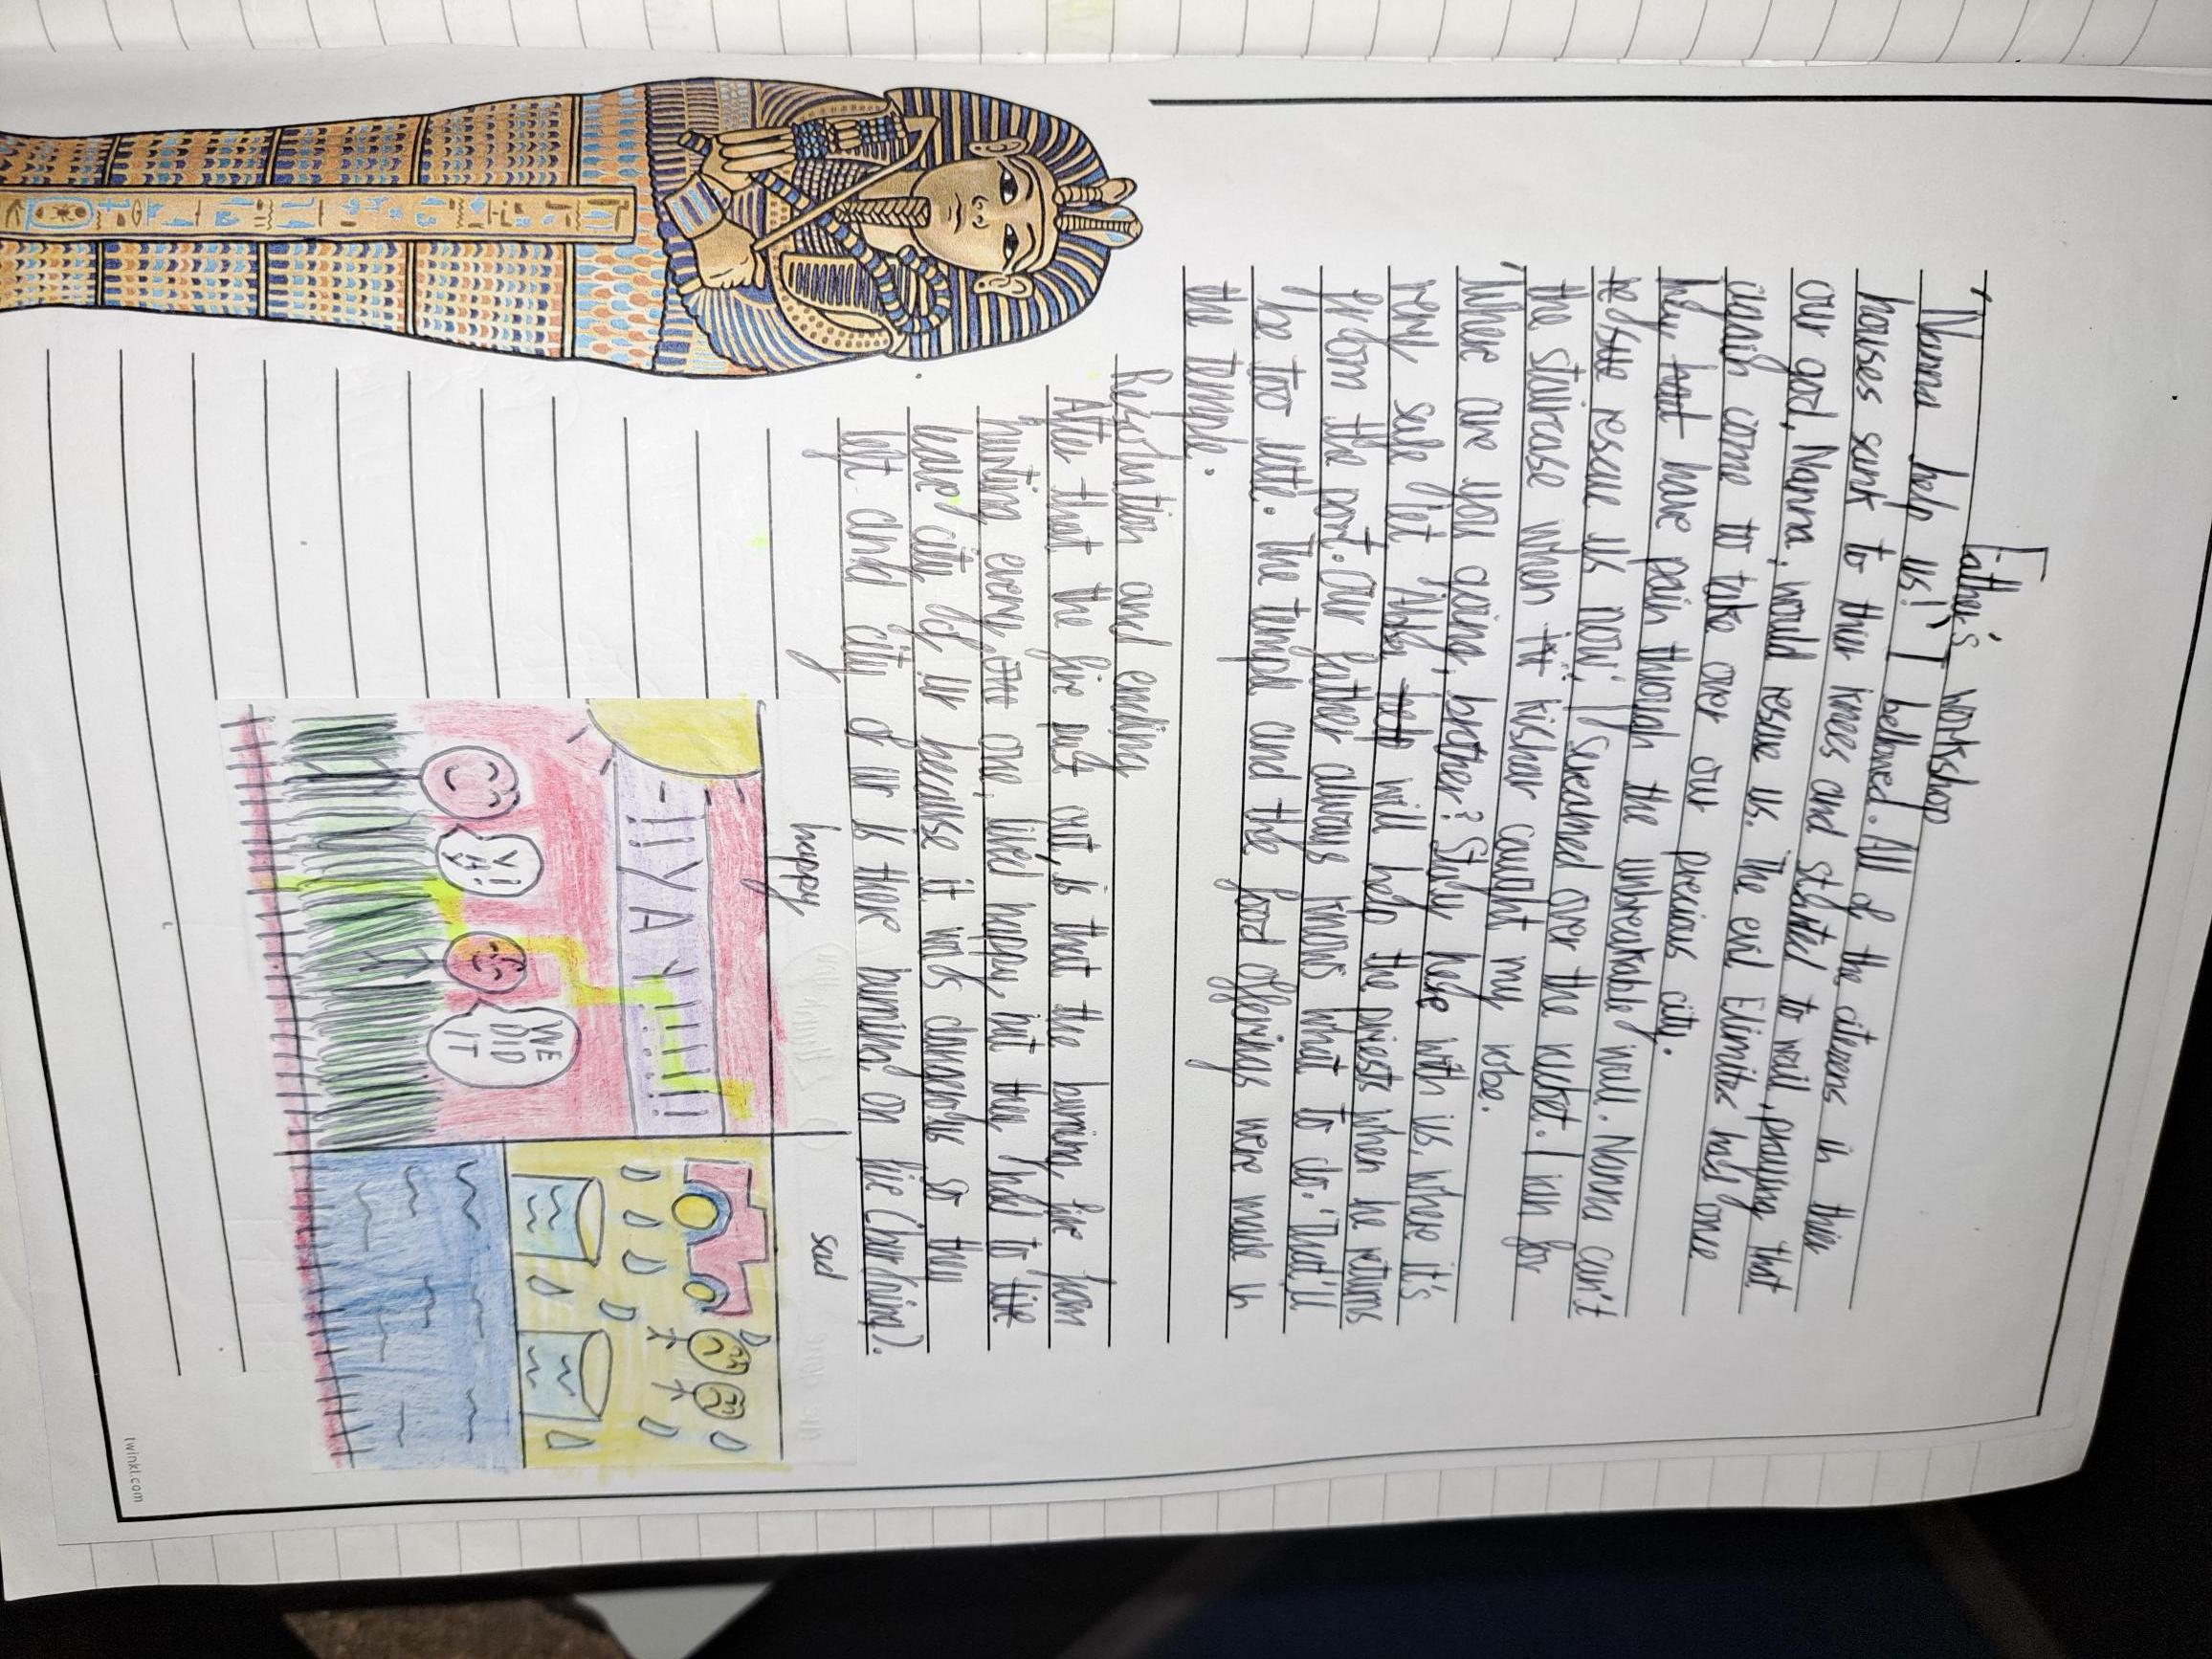 Father's workshop
"Nanna help us!" I bellowed. All of the citizens in thier
houses sank to thier knees and started to wail, praying that
our god, Nanna, would rescue us. The evil Elimites had once
again come to take over our precious city.
They have pain though the unbreakable wall. Nanna can't
rescue us now; I screamed over the racket. I ran for
the staircase when kishar caught my robe.
"Where are you going, brother? Stay here with us, where it's
very safe let Abby will help the priests when he returns
from the port. Our father always knows what to do. That'll
be too late. The temple and the food offerings were made in
the temple.
Resolution and ending
After that the fire put out, is that the burning fire from
hunting every one, lived happy, but they had to
leave city of ur because it was dangerous so they
left and city of ur is there burning on fire (burning).
happy
sad
YAY!!!!!
YA!
WE
DID
IT
twinkl.com